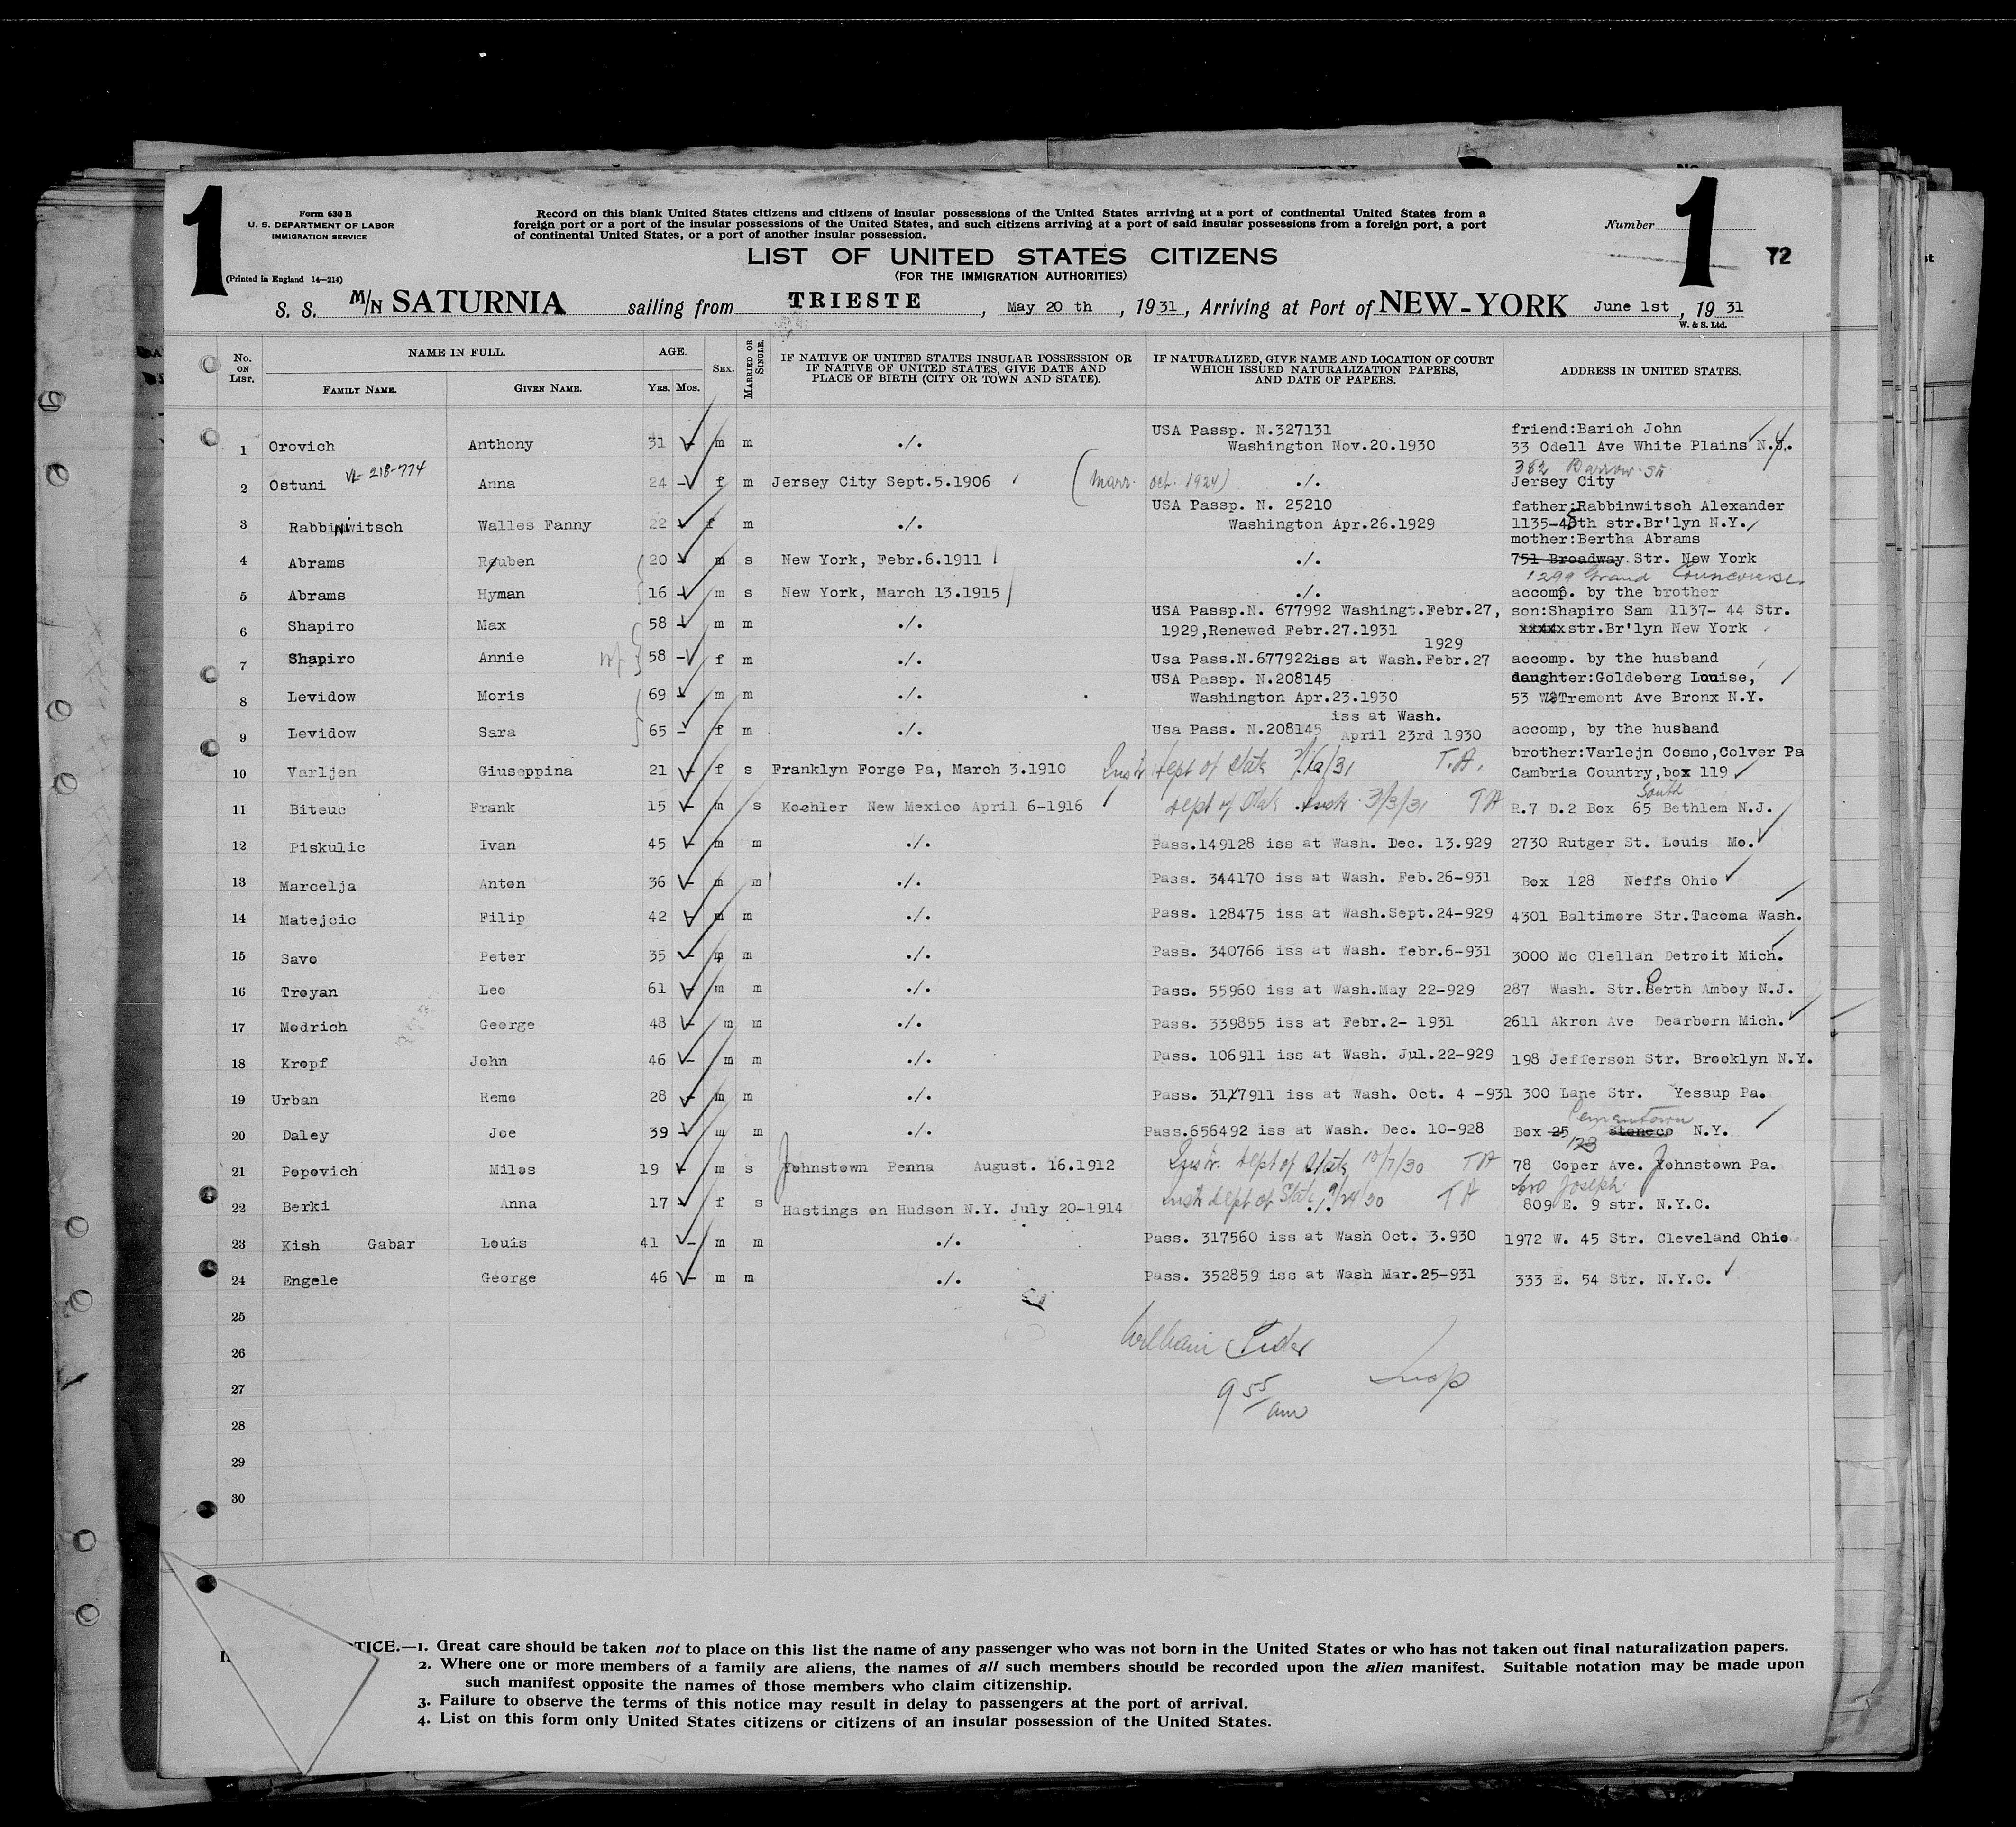 1
1
Form 630 B
U. S. DEPARTMENT OF LABOR
IMMIGRATION SERVICE
(Printed in England 14—214)
Record on this blank United States citizens and citizens of insular possessions of the United States arriving at a port of continental United States from a
foreign port or a port of the insular possessions of the United States, and such citizens arriving at a port of said insular possessions from a foreign port, a port
of continental United States, or a port of another insular possession.
Number
72
LIST OF UNITED STATES CITIZENS
(FOR THE IMMIGRATION AUTHORITIES)
S. S. M/N SATURNIA sailing from TRIESTE, May 20 th, 1931, Arriving at Port of NEW-YORK June 1st, 1931
W. & S. Ltd.
No. ON LIST. NAME IN FULL. FAMILY NAME. GIVEN NAME. AGE. YRS. MOS. SEX. MARRIED OR SINGLE. IF NATIVE OF UNITED STATES INSULAR POSSESSION OR IF NATIVE OF UNITED STATES, GIVE DATE AND PLACE OF BIRTH (CITY OR TOWN AND STATE). IF NATURALIZED, GIVE NAME AND LOCATION OF COURT WHICH ISSUED NATURALIZATION PAPERS, AND DATE OF PAPERS. ADDRESS IN UNITED STATES.
USA Passp. N.327131 friend:Barich John
1 Orovich Anthony 31 - m m ./. Washington Nov.20.1930 33 Odell Ave White Plains N.Y.
218-774 362 Barrow St
2 Ostuni Anna 24 - f m Jersey City Sept.5.1906 (Marr. Oct. 1924) ./. Jersey City
USA Passp. N. 25210 father:Rabbinwitsch Alexander
3 Rabbinwitsch Walles Fanny 22 f m ./. Washington Apr.26.1929 1135-45th str.Br'lyn N.Y.
mother:Bertha Abrams
4 Abrams Reuben 20 m s New York, Febr.6.1911 ./. 751 Broadway Str. New York
1299 Grand Councourse.
5 Abrams Hyman 16 - m s New York, March 13.1915 ./. accomp. by the brother
USA Passp.N. 677992 Washingt.Febr.27, son:Shapiro Sam 1137- 44 Str.
6 Shapiro Max 58 - m m ./. 1929,Renewed Febr.27.1931 xxxxxstr.Br'lyn New York
1929
7 Shapiro Annie wf 58 - f m ./. Usa Pass.N.677922iss at Wash.Febr.27 accomp. by the husband
USA Passp. N.208145 daughter:Goldeberg Louise,
8 Levidow Moris 69 m m ./. Washington Apr.23.1930 53 W Tremont Ave Bronx N.Y.
iss at Wash.
9 Levidow Sara 65 - f m ./. Usa Pass. N.208145 April 23rd 1930 accomp, by the husband
brother:Varlejn Cosmo,Colver Pa
10 Varljen Giuseppina 21 - f s Franklyn Forge Pa, March 3.1910 Instr dept of State T.A. Cambria Country,box 119
South
11 Biteuc Frank 15 - m s Koehler New Mexico April 6-1916 dept of State Instr 3/3/31 TA R.7 D.2 Box 65 Bethlem N.J.
12 Piskulic Ivan 45 - m m ./. Pass.149128 iss at Wash. Dec. 13.929 2730 Rutger St. Louis Mo.
13 Marcelja Anton 36 - m m ./. Pass. 344170 iss at Wash. Feb.26-931 Box 128 Neffs Ohio
14 Matejcic Filip 42 - m m ./. Pass. 128475 iss at Wash.Sept.24-929 4301 Baltimore Str.Tacoma Wash.
15 Savo Peter 35 - m m ./. Pass. 340766 iss at Wash. febr.6-931 3000 Mc Clellan Detroit Mich.
16 Troyan Leo 61 - m m ./. Pass. 55960 iss at Wash.May 22-929 287 Wash. Str.Perth Amboy N.J.
17 Modrich George 48 - m m ./. Pass. 339855 iss at Febr.2- 1931 2611 Akron Ave Dearborn Mich.
18 Kropf John 46 - m m ./. Pass. 106911 iss at Wash. Jul.22-929 198 Jefferson Str. Brooklyn N.Y.
19 Urban Remo 28 - m m ./. Pass. 3117911 iss at Wash. Oct. 4 -931 300 Lane Str. Yessup Pa.
Cementown
20 Daley Joe 39 - m m ./. Pass.656492 iss at Wash. Dec. 10-928 Box 25 stoneco N.Y.
123
21 Popovich Milos 19 - m s Johnstown Penna August. 16.1912 Instr. dept of State 10/7/30 TA 78 Coper Ave. Johnstown Pa.
bro Joseph
22 Berki Anna 17 f s Hastings on Hudson N.Y. July 20-1914 Instr dept of State 9/24/30 TA 809 E. 9 str. N.Y.C.
23 Kish Gabar Louis 41 - m m ./. Pass. 317560 iss at Wash Oct. 3.930 1972 W. 45 Str. Cleveland Ohio
24 Engele George 46 - m m ./. Pass. 352859 iss at Wash Mar.25-931 333 E. 54 Str. N.Y.C.
25
26 William
27 9 55
28 am
29
30
NOTICE.—1. Great care should be taken not to place on this list the name of any passenger who was not born in the United States or who has not taken out final naturalization papers.
2. Where one or more members of a family are aliens, the names of all such members should be recorded upon the alien manifest. Suitable notation may be made upon
such manifest opposite the names of those members who claim citizenship.
3. Failure to observe the terms of this notice may result in delay to passengers at the port of arrival.
4. List on this form only United States citizens or citizens of an insular possession of the United States.